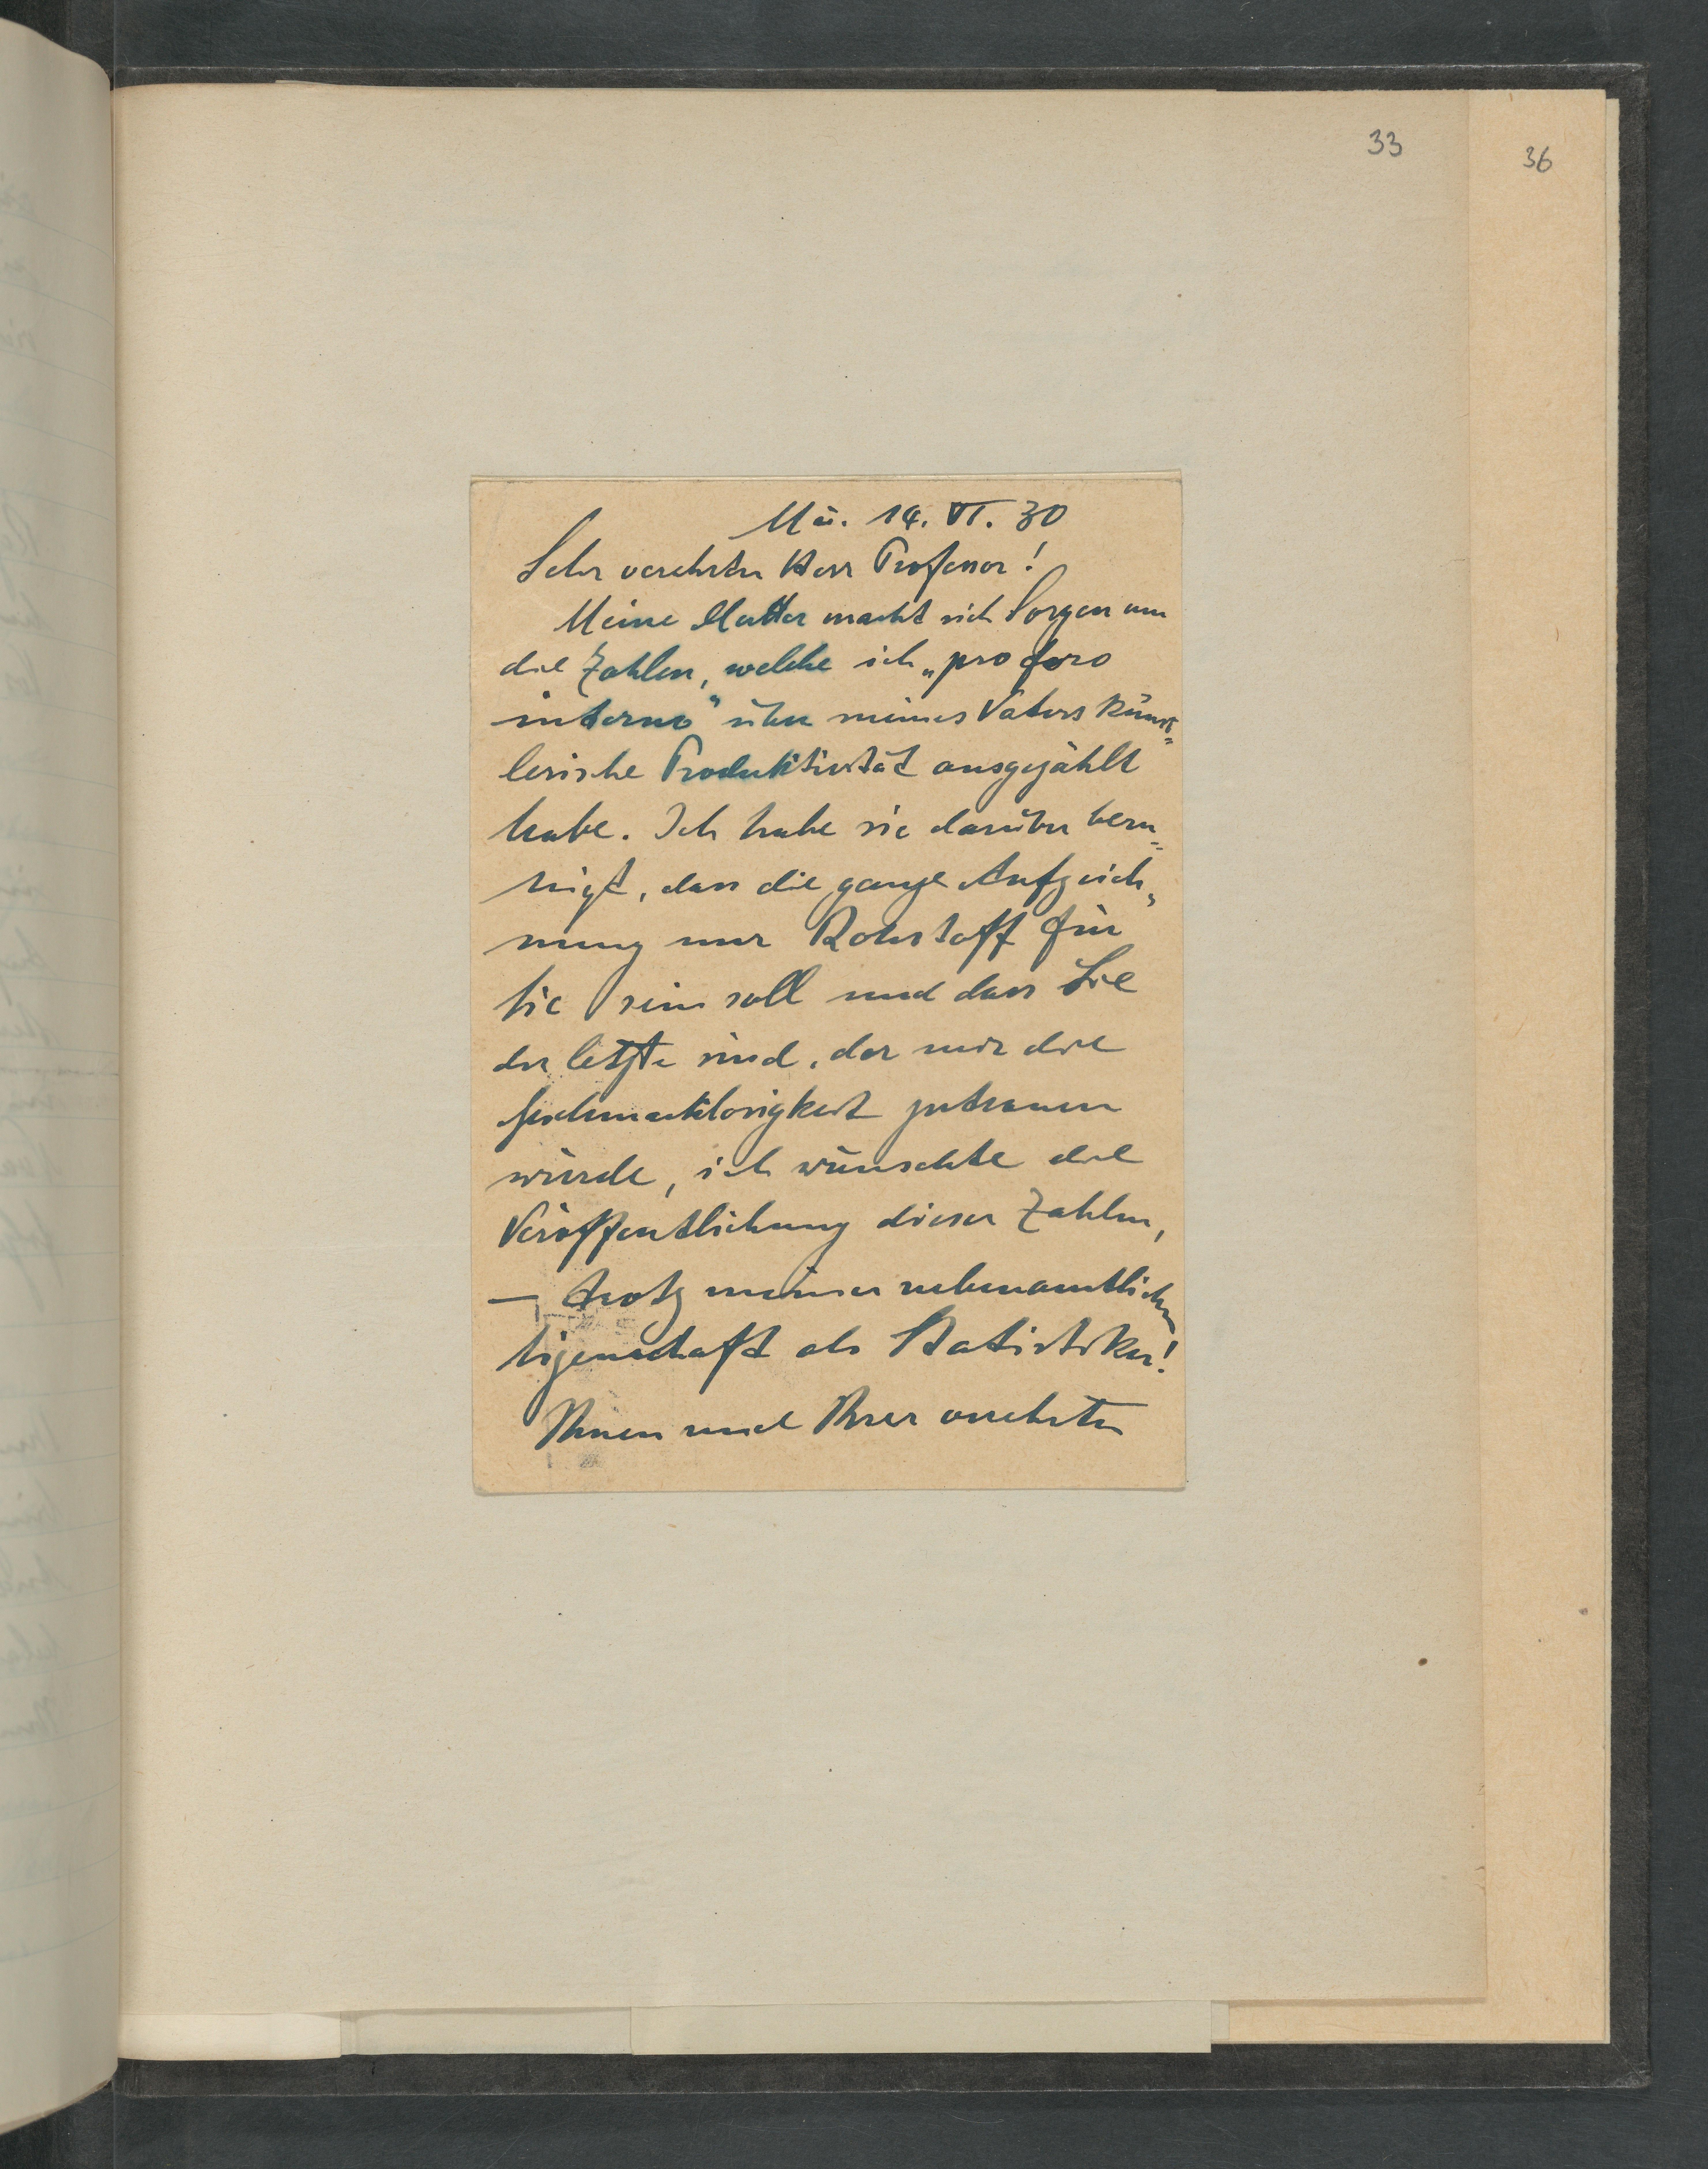 33
36
Mü. 14. VI. 30
Sehr verehrter Herr Professor!
Meine Mutter macht sich Sorgen um
die Zahlen, welche ich „pro foro
interno" über meines Vaters künst=
lerische Produktivität ausgezählt
habe. Ich habe sie darüber beru=
higt, dass die ganze Aufzeich=
nung nur Rohstoff für
Sie sein soll und dass Sie
der letzte sind, der mir die
Geschmacklosigkeit zutrauen
würde, ich wünschte die
Veröffentlichung dieser Zahlen,
— trotz meiner nebenamtlichen
Eigenschaft als Statistiker!
Ihnen und Ihrer verehrten